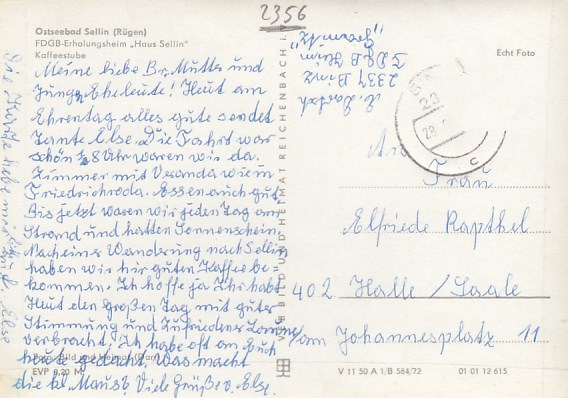 2356
Ostseebad Sellin (Rügen)
FDGB-Erholungsheim „Haus Sellin"
Kaffeestube
Meine liebe Br. Mutts und
Junge Eheleute! Heut am
Ehrentag alles gute sendet
Tante Else. Die Fahrt war
schön 8 Uhr waren wir da.
Zimmer mit Veranda wie in
Friedrichroda. Essen auch gut.
Bis jetzt waren wir jeden Tag am
Strand und hatten Sonnenschein.
Nach einer Wanderung nach Sellin
haben wir hir guten Kaffee be-
kommen. Ich hoffe ja Ihr habt
Heut den Großen Tag mit guter
Stimmung und Zufriedener
verbracht. Ich habe oft an Euch
heute gedacht. Was macht
die kl. Maus? Viele Grüße v. Else.
Foto: Bild und Heimat
EVP 0,20 M
Die Karte habe Else
VEB BILD UND HEIMAT REICHENBACH i. V.
2337 Binz
FDGB Heim
Echt Foto
23
28
c
An
Frau
Elfriede Rapthel
402 Halle / Saale
am Johannesplatz 11
V 11 50 A 1/B 584/72
01 01 12 615